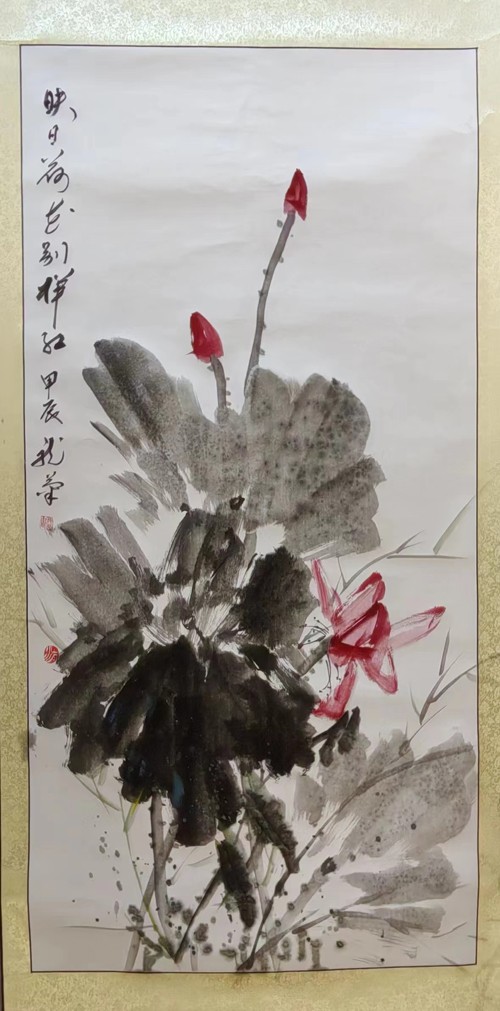 映日荷花别样红 甲辰 龙菊